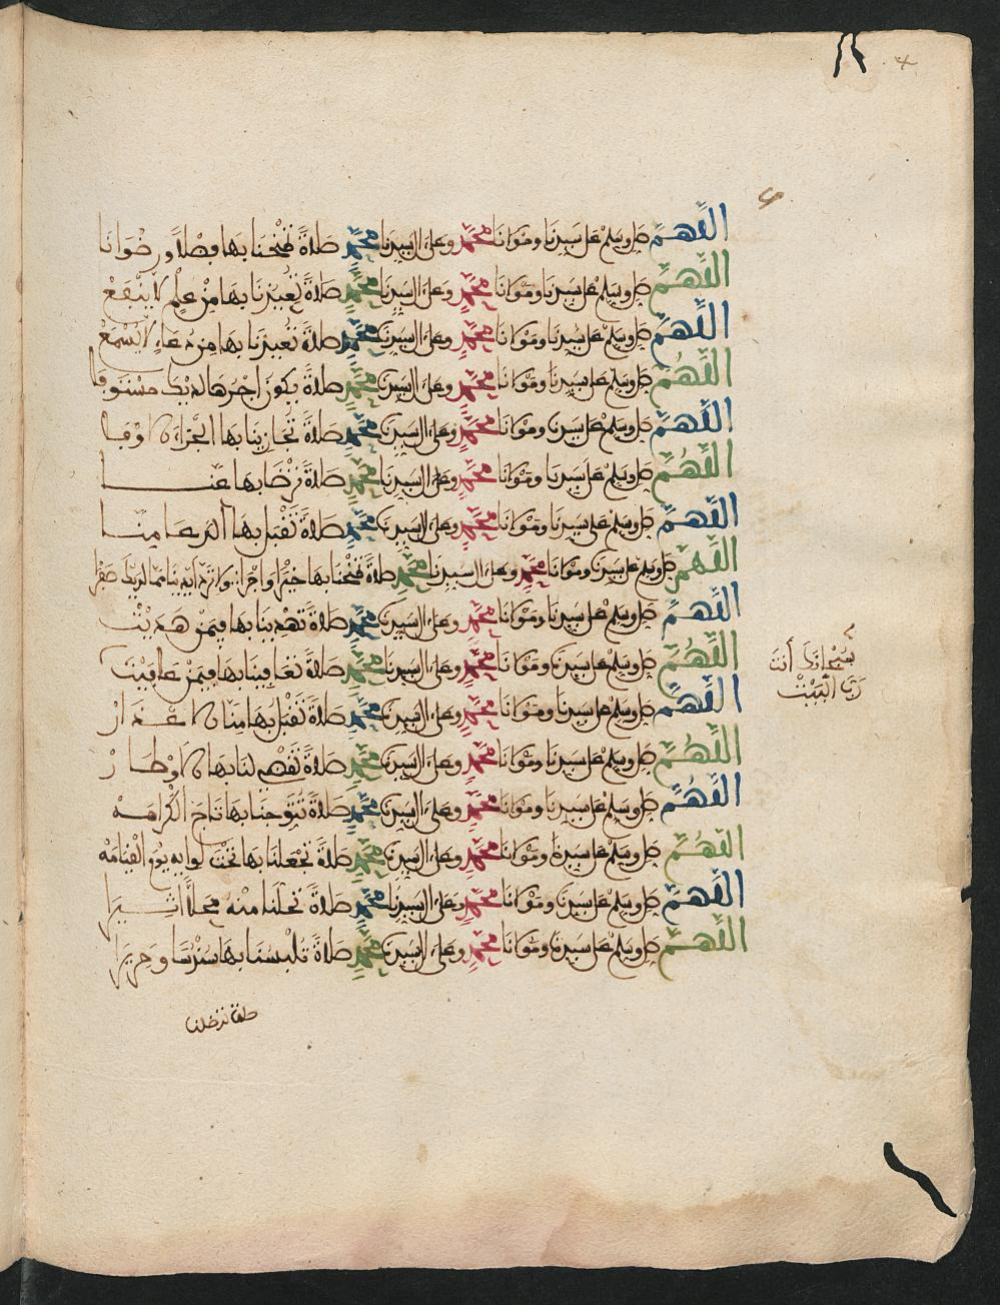 اللهم صل وسلم على سيدنا ومولانا محمد وعلى ال سيدنا محمد صلاة تمنحنا بها فضلا ورضوانا
اللهم صل وسلم على سيدنا ومولانا محمد وعلى ال سيدنا محمد صلاة تعيذنا بها من علم لا ينفع
اللهم صل وسلم على سيدنا ومولانا محمد وعلى ال سيدنا محمد صلاة تعيذنا بها من دعاء لا يسمع
اللهم صل وسلم على سيدنا ومولانا محمد وعلى ال سيدنا محمد صلاة يكون اجرها لديك
اللهم صل وسلم على سيدنا ومولانا محمد وعلى ال سيدنا محمد صلاة تجازينا بها الجزاء الاوفا
اللهم صل وسلم على سيدنا ومولانا محمد وعلى ال سيدنا محمد صلاة ترضا بها عنا
اللهم صل وسلم على سيدنا ومولانا محمد وعلى ال سيدنا محمد صلاة تقبل بها الدعا منا
اللهم صل وسلم على سيدنا ومولانا محمد وعلى ال سيدنا محمد صلاة تمنحنا بها خيرا واجرا ولا ترد ايدينا
اللهم صل وسلم على سيدنا ومولانا محمد وعلى ال سيدنا محمد صلاة تهدينا بها فيمن هديت
اللهم صل وسلم على سيدنا ومولانا محمد وعلى ال سيدنا محمد صلاة تعافينا بها فيمن عافيت
اللهم صل وسلم على سيدنا ومولانا محمد وعلى ال سيدنا محمد صلاة تقبل بها منا الاعذار
اللهم صل وسلم على سيدنا ومولانا محمد وعلى ال سيدنا محمد صلاة تقضي لنا بها الاوطار
اللهم صل وسلم على سيدنا ومولانا محمد وعلى ال سيدنا محمد صلاة تتوجنا بها تاج الكرامه
اللهم صل وسلم على سيدنا ومولانا محمد وعلى ال سيدنا محمد صلاة تجعلنا بها تحت لوايه يوم القيامه
اللهم صل وسلم على سيدنا ومولانا محمد وعلى ال سيدنا محمد صلاة تحلنا منه محلا اثيرا
اللهم صل وسلم على سيدنا ومولانا محمد وعلى ال سيدنا محمد صلاة تلبسنا بها سندسا وحريرا
سبحانك أنت
رب البيت
صلاة